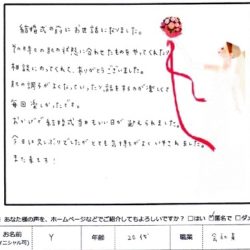 結婚式の前にお世話になりました。
その時々の肌の状態に合わせたものをやってくれたり
相談にのってくれて、ありがとうございました。
肌の調子がよくなっていったり、話をするのが楽しくて
毎回楽しかったです。
おかげで結婚式当日もいい日が迎えられました。
今日は久しぶりでしたがとても気持ちがよくいやされました。
また来ます!
あなた様の声を、ホームページなどでご紹介してもよろしいですか? □はい □匿名で □ダメ
お名前
(イニシャル可)
Y
年齢
20代
職業
会社員